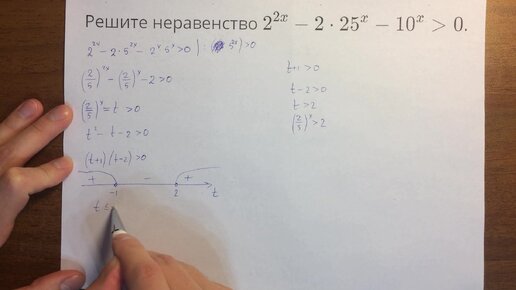 Решите неравенство 2^{2x} − 2 · 25^x − 10^x > 0.
2^{2x} − 2 · 5^{2x} − 2^x 5^x > 0 | : ( 5^{2x}) > 0
(2/5)^{2x} − (2/5)^x − 2 > 0
(2/5)^x = t > 0
t² − t − 2 > 0
(t+1)(t−2) > 0
+ − +
−1 2 t
t ≤
t+1 > 0
t−2 > 0
t > 2
(2/5)^x > 2